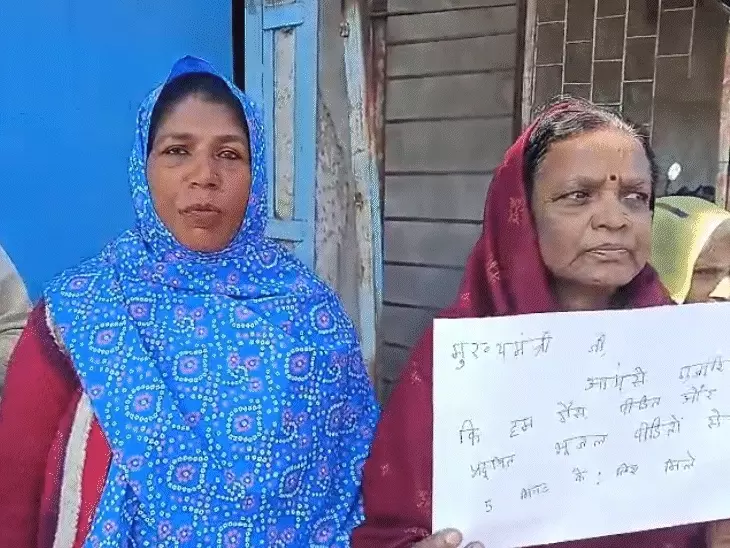 मुख्यमंत्री जी,
आपसे गुजारि
कि हम गैस पीडित और
प्रदूषित भूजल पीडितों से
5 मिनट के लिए मिले